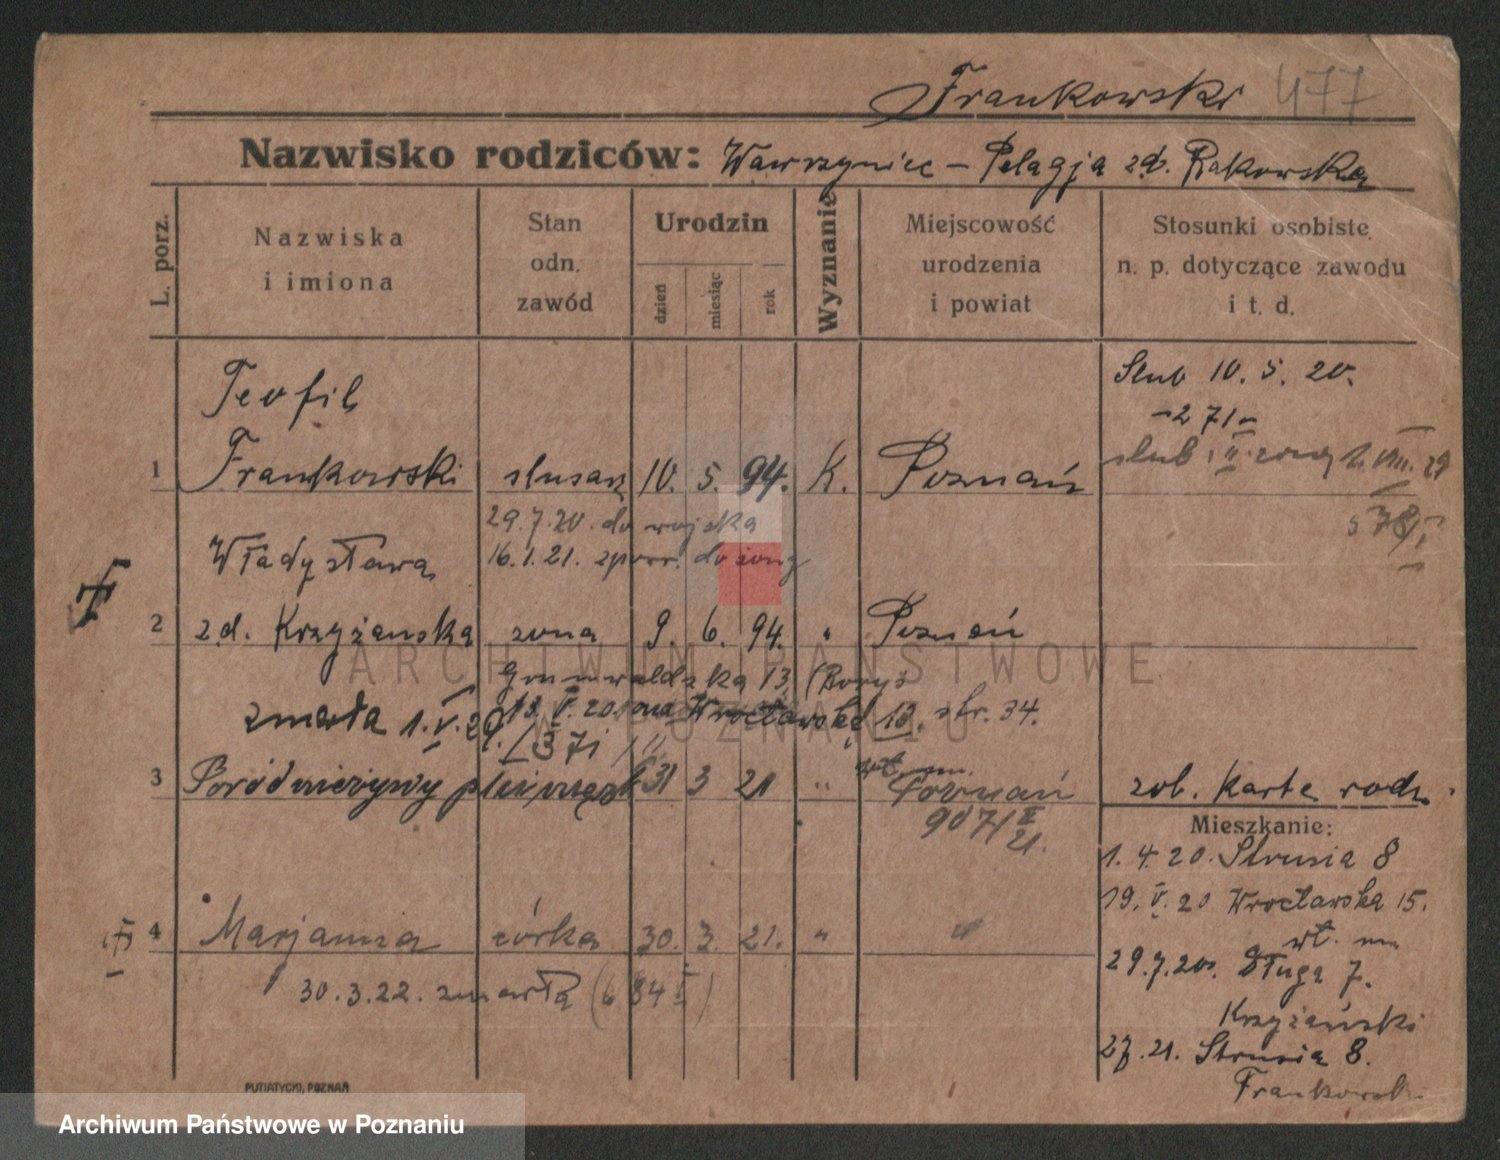 Frankowski 477
Nazwisko rodziców: Wawrzyniec – Pelagja zd. Rakowska
L. porz.
Nazwiska i imiona
Stan odn. zawód
Urodzin
dzień
miesiąc
rok
Wyznanie
Miejscowość urodzenia i powiat
Stosunki osobiste n. p. dotyczące zawodu i t. d.
Teofil
1 Frankowski ślusarz 10. 5. 94. K. Poznań
Ślub 10. 5. 20.
271
ślub II. żoną VIII. 29
578/
29.7.20. do wojska
16.1.21. do żony
Władysława
2 zd. Krzyżańska żona 9. 6. 94. " Poznań
Grunwaldzka 13
13. V. 20. Wrocławska 13. str. 34.
zmarła 1. V. 29.
3 Poród nieżywy 31 3 21 " Poznań
907/II 21.
zob. Karte rodz.
Mieszkanie:
1. 4. 20. Strusia 8
19. V. 20 Wrocławska 15.
wł. m
29.7.20. Długa 7.
Krzyżański
21. Strusia 8.
Frankowski
4 Marjanna córka 30. 3. 21. " "
30.3.22. zmarła (684 I)
PUTIATYCKI, POZNAŃ
ARCHIWUM PAŃSTWOWE
W POZNANIU
Archiwum Państwowe w Poznaniu